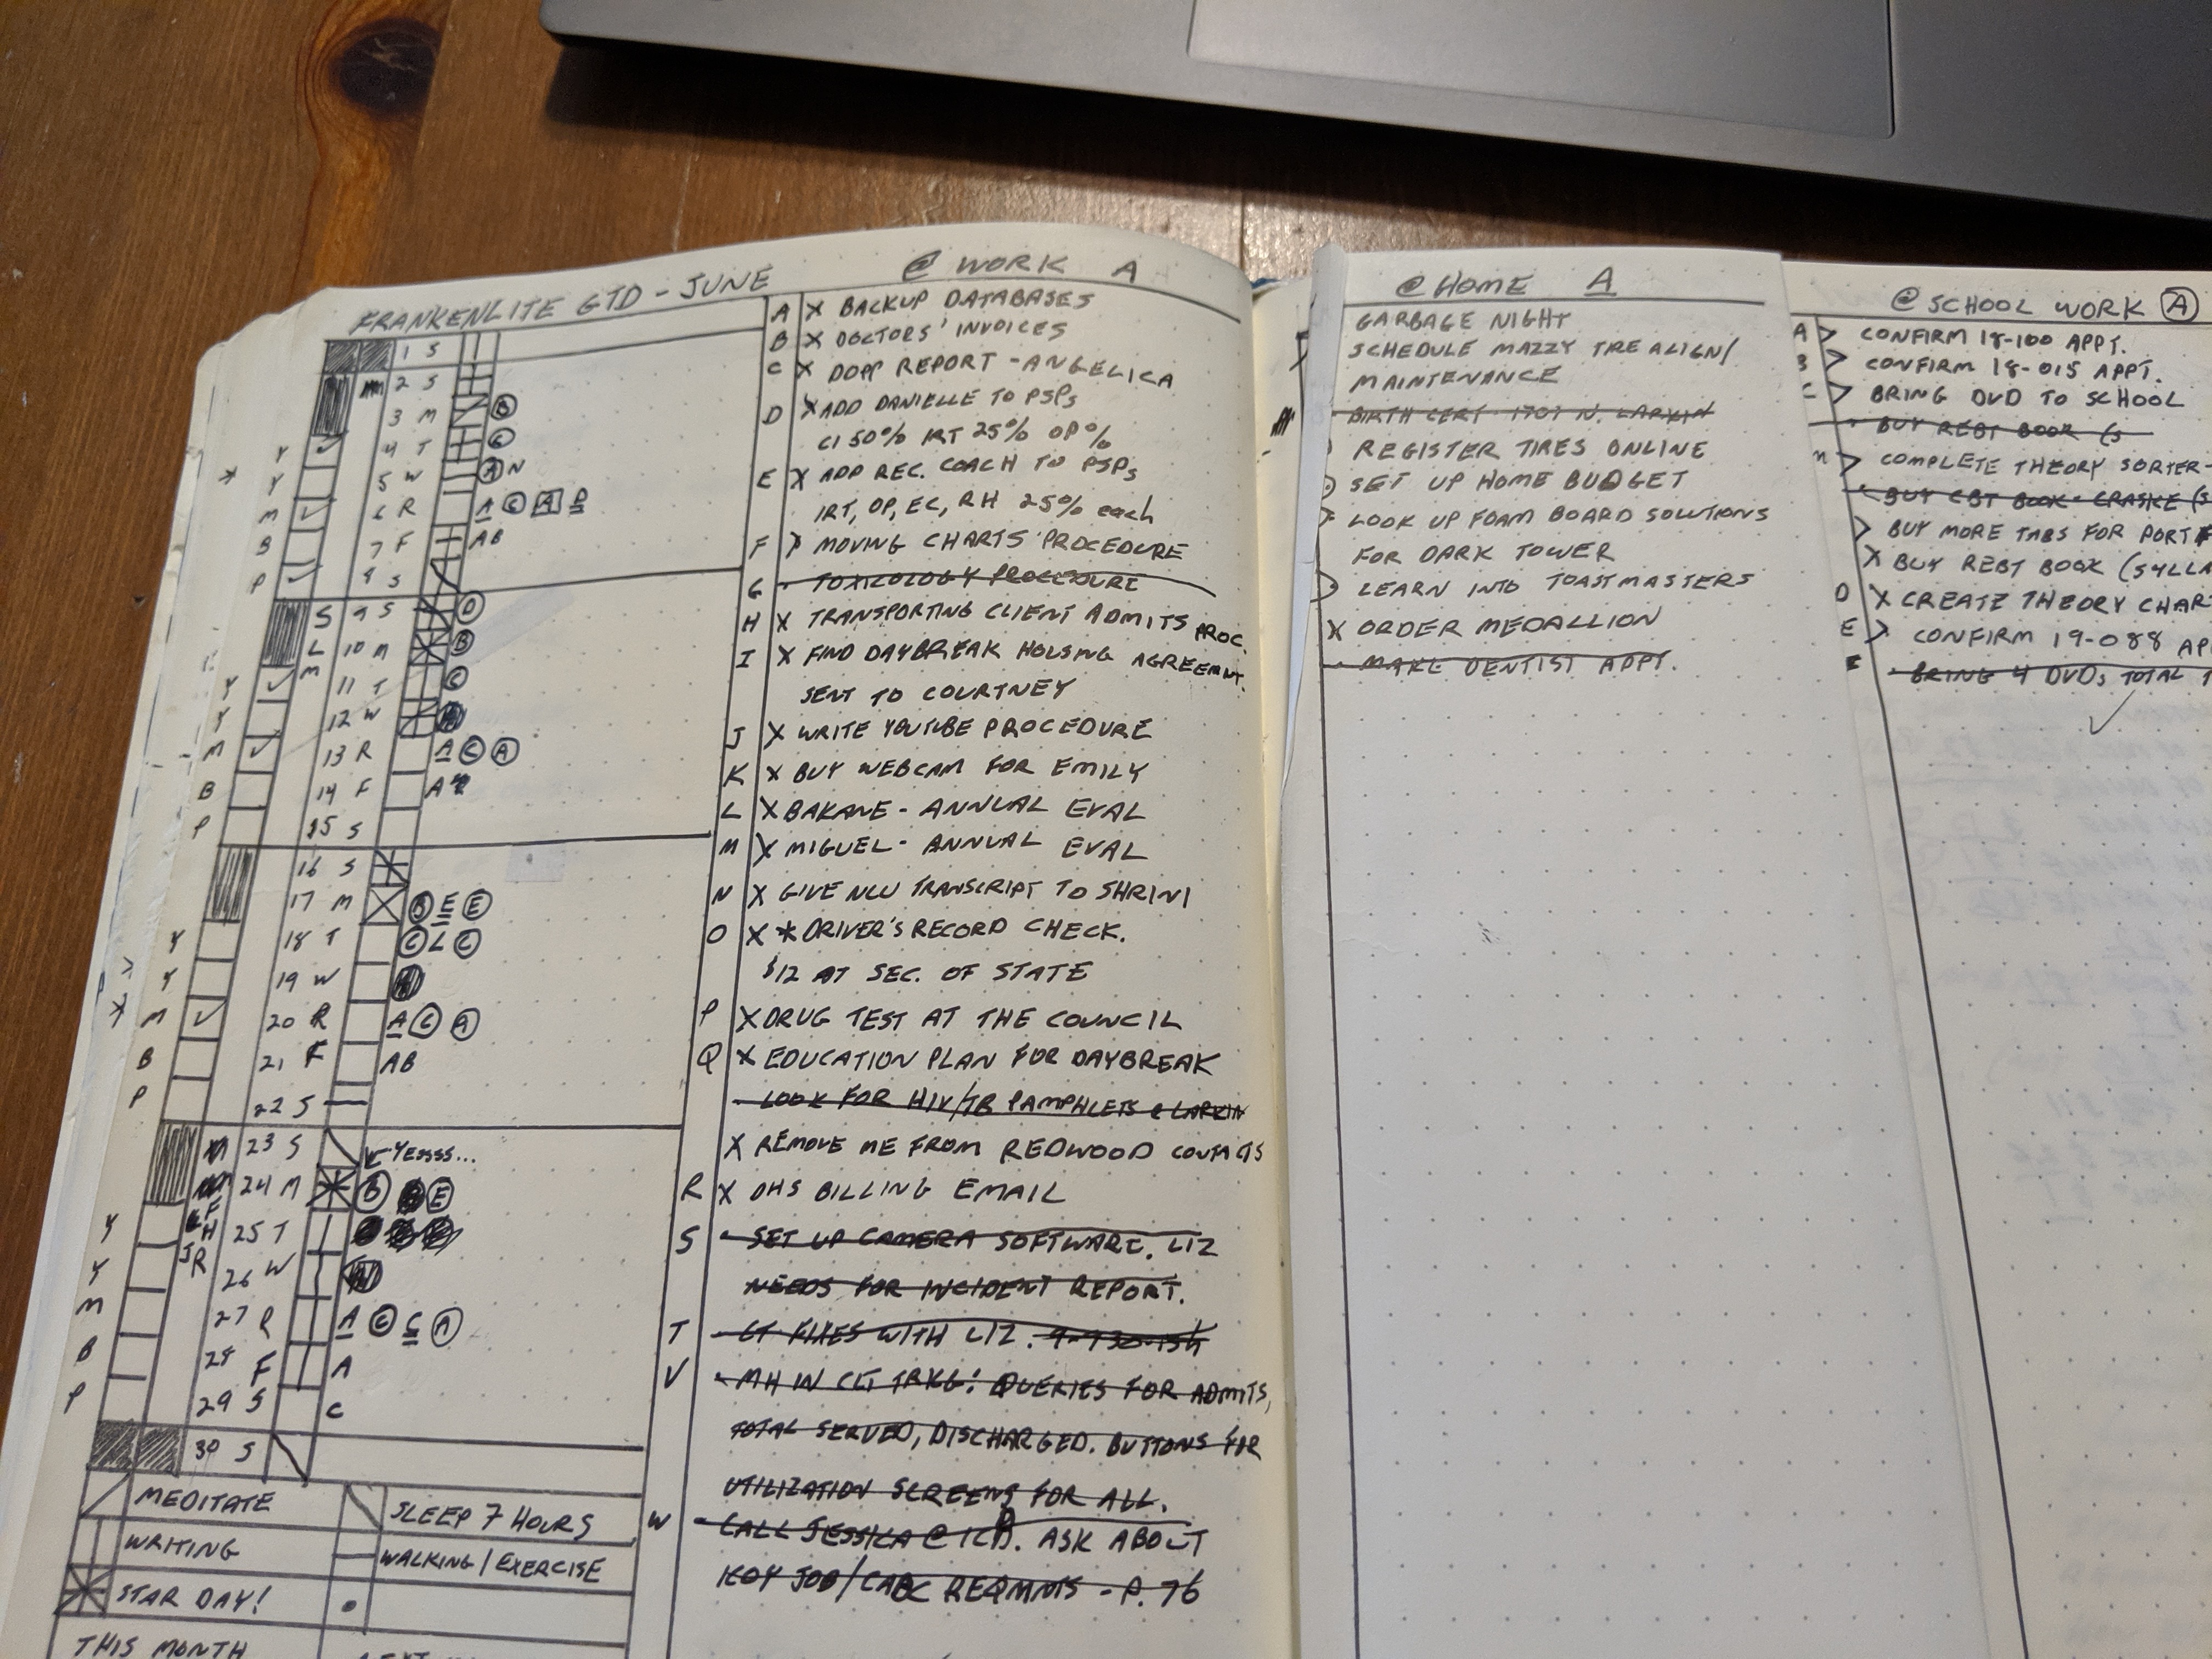 FRANKENLITE GTD - JUNE
1 S
2 S
3 M B
Y 4 T C
* Y 5 W A N
M 6 R A C A D
B 7 F AB
P 8 S
S 9 S D
L 10 M B
M
Y 11 T C
Y 12 W
M 13 R A C A
B 14 F A
P 15 S
16 S
17 M B E E
Y 18 T C L C
> Y 19 W
* M 20 R A C A
B 21 F AB
P 22 S
M 23 S ← YESSSS...
24 M B E
F
Y H 25 T
JR
Y 26 W
M 27 R A C C A
B 28 F A
P 29 S C
30 S
MEDITATE SLEEP 7 HOURS
WRITING WALKING/EXERCISE
STAR DAY! •
THIS MONTH
@ WORK A
A X BACKUP DATABASES
B X DOCTORS' INVOICES
C X DOPP REPORT - ANGELICA
D X ADD DANIELLE TO PSPs
CI 50% IRT 25% OP %
E X ADD REC. COACH TO PSPs
IRT, OP, EC, RH 25% each
F > MOVING CHARTS PROCEDURE
G - TOXICOLOGY PROCEDURE
H X TRANSPORTING CLIENT ADMITS PROC.
I X FIND DAYBREAK HOUSING AGREEMNT.
SENT TO COURTNEY
J X WRITE YOUTUBE PROCEDURE
K X BUY WEBCAM FOR EMILY
L X BAKANE - ANNUAL EVAL
M X MIGUEL - ANNUAL EVAL
N X GIVE NLU TRANSCRIPT TO SHRINI
O X * DRIVER'S RECORD CHECK.
$12 AT SEC. OF STATE
P X DRUG TEST AT THE COUNCIL
Q X EDUCATION PLAN FOR DAYBREAK
- LOOK FOR HIV/TB PAMPHLETS @ LARKIN
X REMOVE ME FROM REDWOOD CONTACTS
R X DHS BILLING EMAIL
S - SET UP CAMERA SOFTWARE. LIZ
NEEDS FOR INCIDENT REPORT.
T - CT FIXES WITH LIZ.
V - MH IN CLT TRKG: QUERIES FOR ADMITS,
TOTAL SERVED, DISCHARGED. BUTTONS FOR
UTILIZATION SCREENS FOR ALL.
W - CALL JESSICA @ ICB. ASK ABOUT
KOY JOB/CABC REQMNTS - P. 76
@ HOME A
GARBAGE NIGHT
SCHEDULE MAZZY TIRE ALIGN/
MAINTENANCE
- BIRTH CERT - 1707 N. LARKIN
REGISTER TIRES ONLINE
SET UP HOME BUDGET
> LOOK UP FOAM BOARD SOLUTIONS
FOR DARK TOWER
> LEARN INTO TOASTMASTERS
X ORDER MEDALLION
- MAKE DENTIST APPT.
@ SCHOOL WORK A
A > CONFIRM 18-100 APPT.
B > CONFIRM 18-015 APPT.
C > BRING DVD TO SCHOOL
- BUY REBT BOOK (S
M > COMPLETE THEORY SORTER-
- BUY CBT BOOK - CRASKE (S
> BUY MORE TABS FOR PORTF
X BUY REBT BOOK (SYLLA
D X CREATE THEORY CHAR
E > CONFIRM 19-088 AP
- BRING 4 DVDs TOTAL T